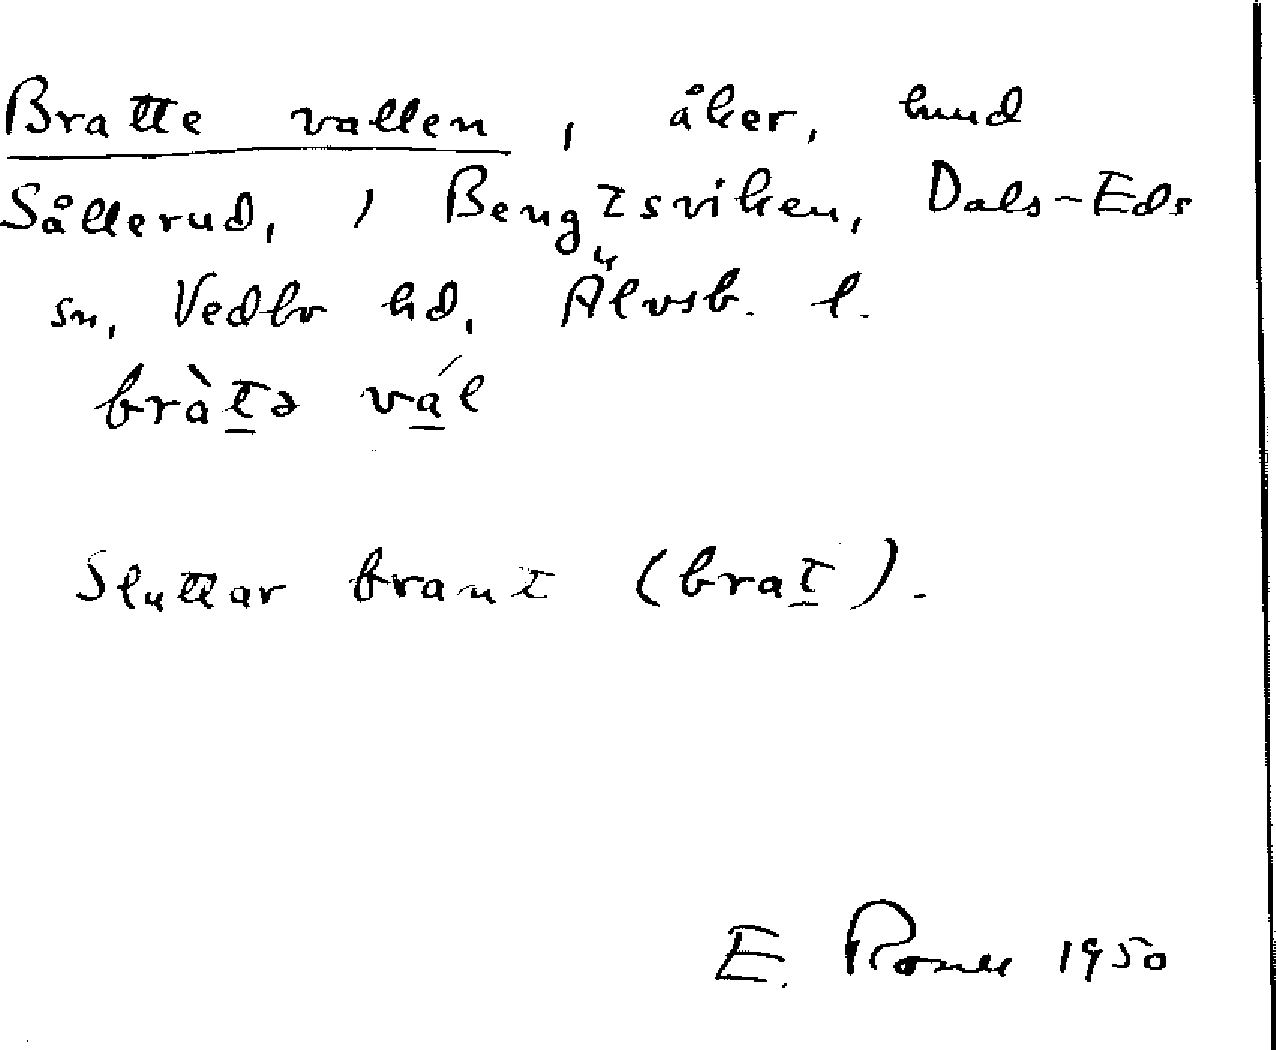 Bratte vallen, åker, hmd
Sållerud, 1 Bengtsviken, Dals-Eds
sn, Vedbo hd, Älvsb. l.
bràtə vál
Sluttar brant (brat).
E. 1950